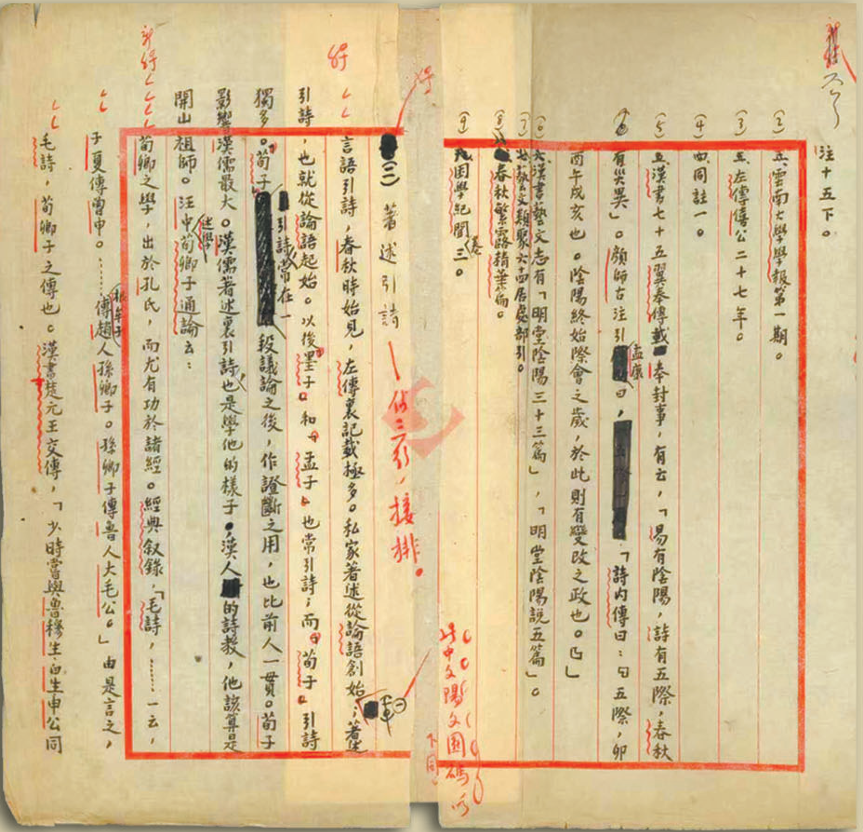 注十五下。
(二) 雲南大學學報第一期。
(三) 左傳僖公二十七年。
(四) 同註一。
(五) 漢書七十五翼奉傳載奉封事,有云,「易有陰陽,詩有五際,春秋
有災異」。顏師古注引孟康曰,「詩內傳曰:曰五際,卯
酉午戌亥也。陰陽終始際會之歲,於此則有變改之政也。」
漢書藝文志有「明堂陰陽三十三篇」,「明堂陰陽說五篇」。
藝文類聚六十四居處部引。
春秋繁露精華篇。
困學紀聞卷三。
此中文陽文圍碼
下同
接排。
(三) 著述引詩
言語引詩,春秋時始見,左傳裏記載極多。私家著述從論語創始;著述
引詩,也就從論語起始。以後墨子和孟子也常引詩;而荀子引詩
獨多。荀子引詩常在一段議論之後,作證斷之用,也比前人一貫。荀子
影響漢儒最大。漢儒著述裏引詩也是學他的樣子,漢人的詩教,他該算是
開山祖師。汪中述學荀卿子通論云:
荀卿之學,出於孔氏,而尤有功於諸經。經典敘錄,「毛詩,……一云,
子夏傳曾申。……根牟子傳趙人孫卿子。孫卿子傳魯人大毛公。」由是言之,
毛詩,荀卿子之傳也。漢書楚元王交傳,「少時嘗與魯穆生白生申公同